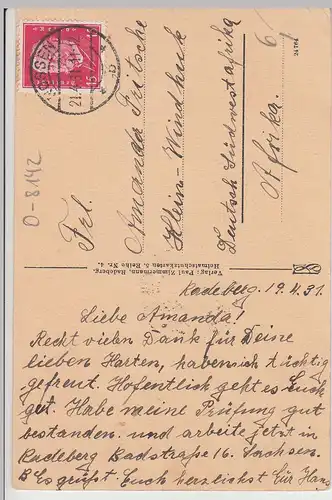 Frl.
Amanda Fritsche
Klein-Windhuk
Deutsch Südwestafrika
Afrika.
61
O-8142
15 15
21.4.31
Verlag: Paul Zimmermann, Radeberg.
Heimatschutzkarten 3. Reihe Nr. 4.
Radeberg. 19.4.31.
Liebe Amanda!
Recht vielen Dank für Deine
lieben Karten, haben mich tüchtig
gefreut. Hoffentlich geht es Euch
gut. Habe meine Prüfung gut
bestanden. und arbeite jetzt in
Radeberg Badstraße 16. Sachsen.
Es grüßt Euch herzlichst Eür Hans